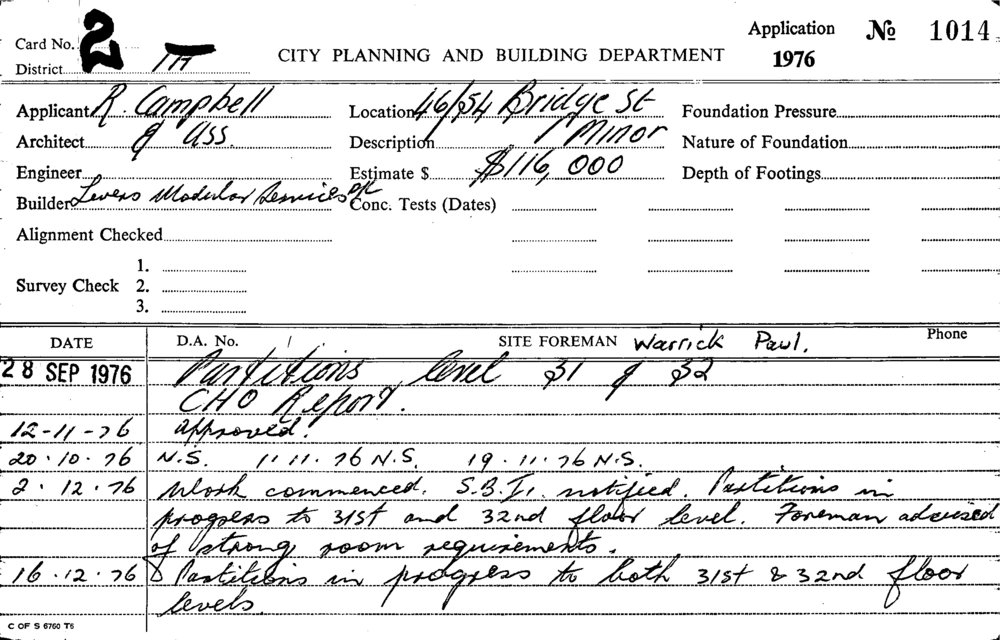 Card No. 2
District III
CITY PLANNING AND BUILDING DEPARTMENT
Application № 1014
1976
Applicant R. Campbell
Architect & Ass.
Engineer
Builder Levers Modular Services P/L
Alignment Checked
Survey Check 1.
2.
3.
Location 46/54 Bridge St
Description Minor
Estimate $ $116,000
Conc. Tests (Dates)
Foundation Pressure
Nature of Foundation
Depth of Footings
DATE D.A. No. / SITE FOREMAN Warrick Paul. Phone
28 SEP 1976 Partitions level 31 & 32
CHO Report.
12-11-76 Approved.
20.10.76 N.S. 1.11.76 N.S. 19.11.76 N.S.
2.12.76 Work commenced. S.B.I. notified. Partitions in
progress to 31st and 32nd floor level. Foreman advised
of strong room requirements.
16.12.76 Partitions in progress to both 31st & 32nd floor
levels.
C OF S 6760 T6